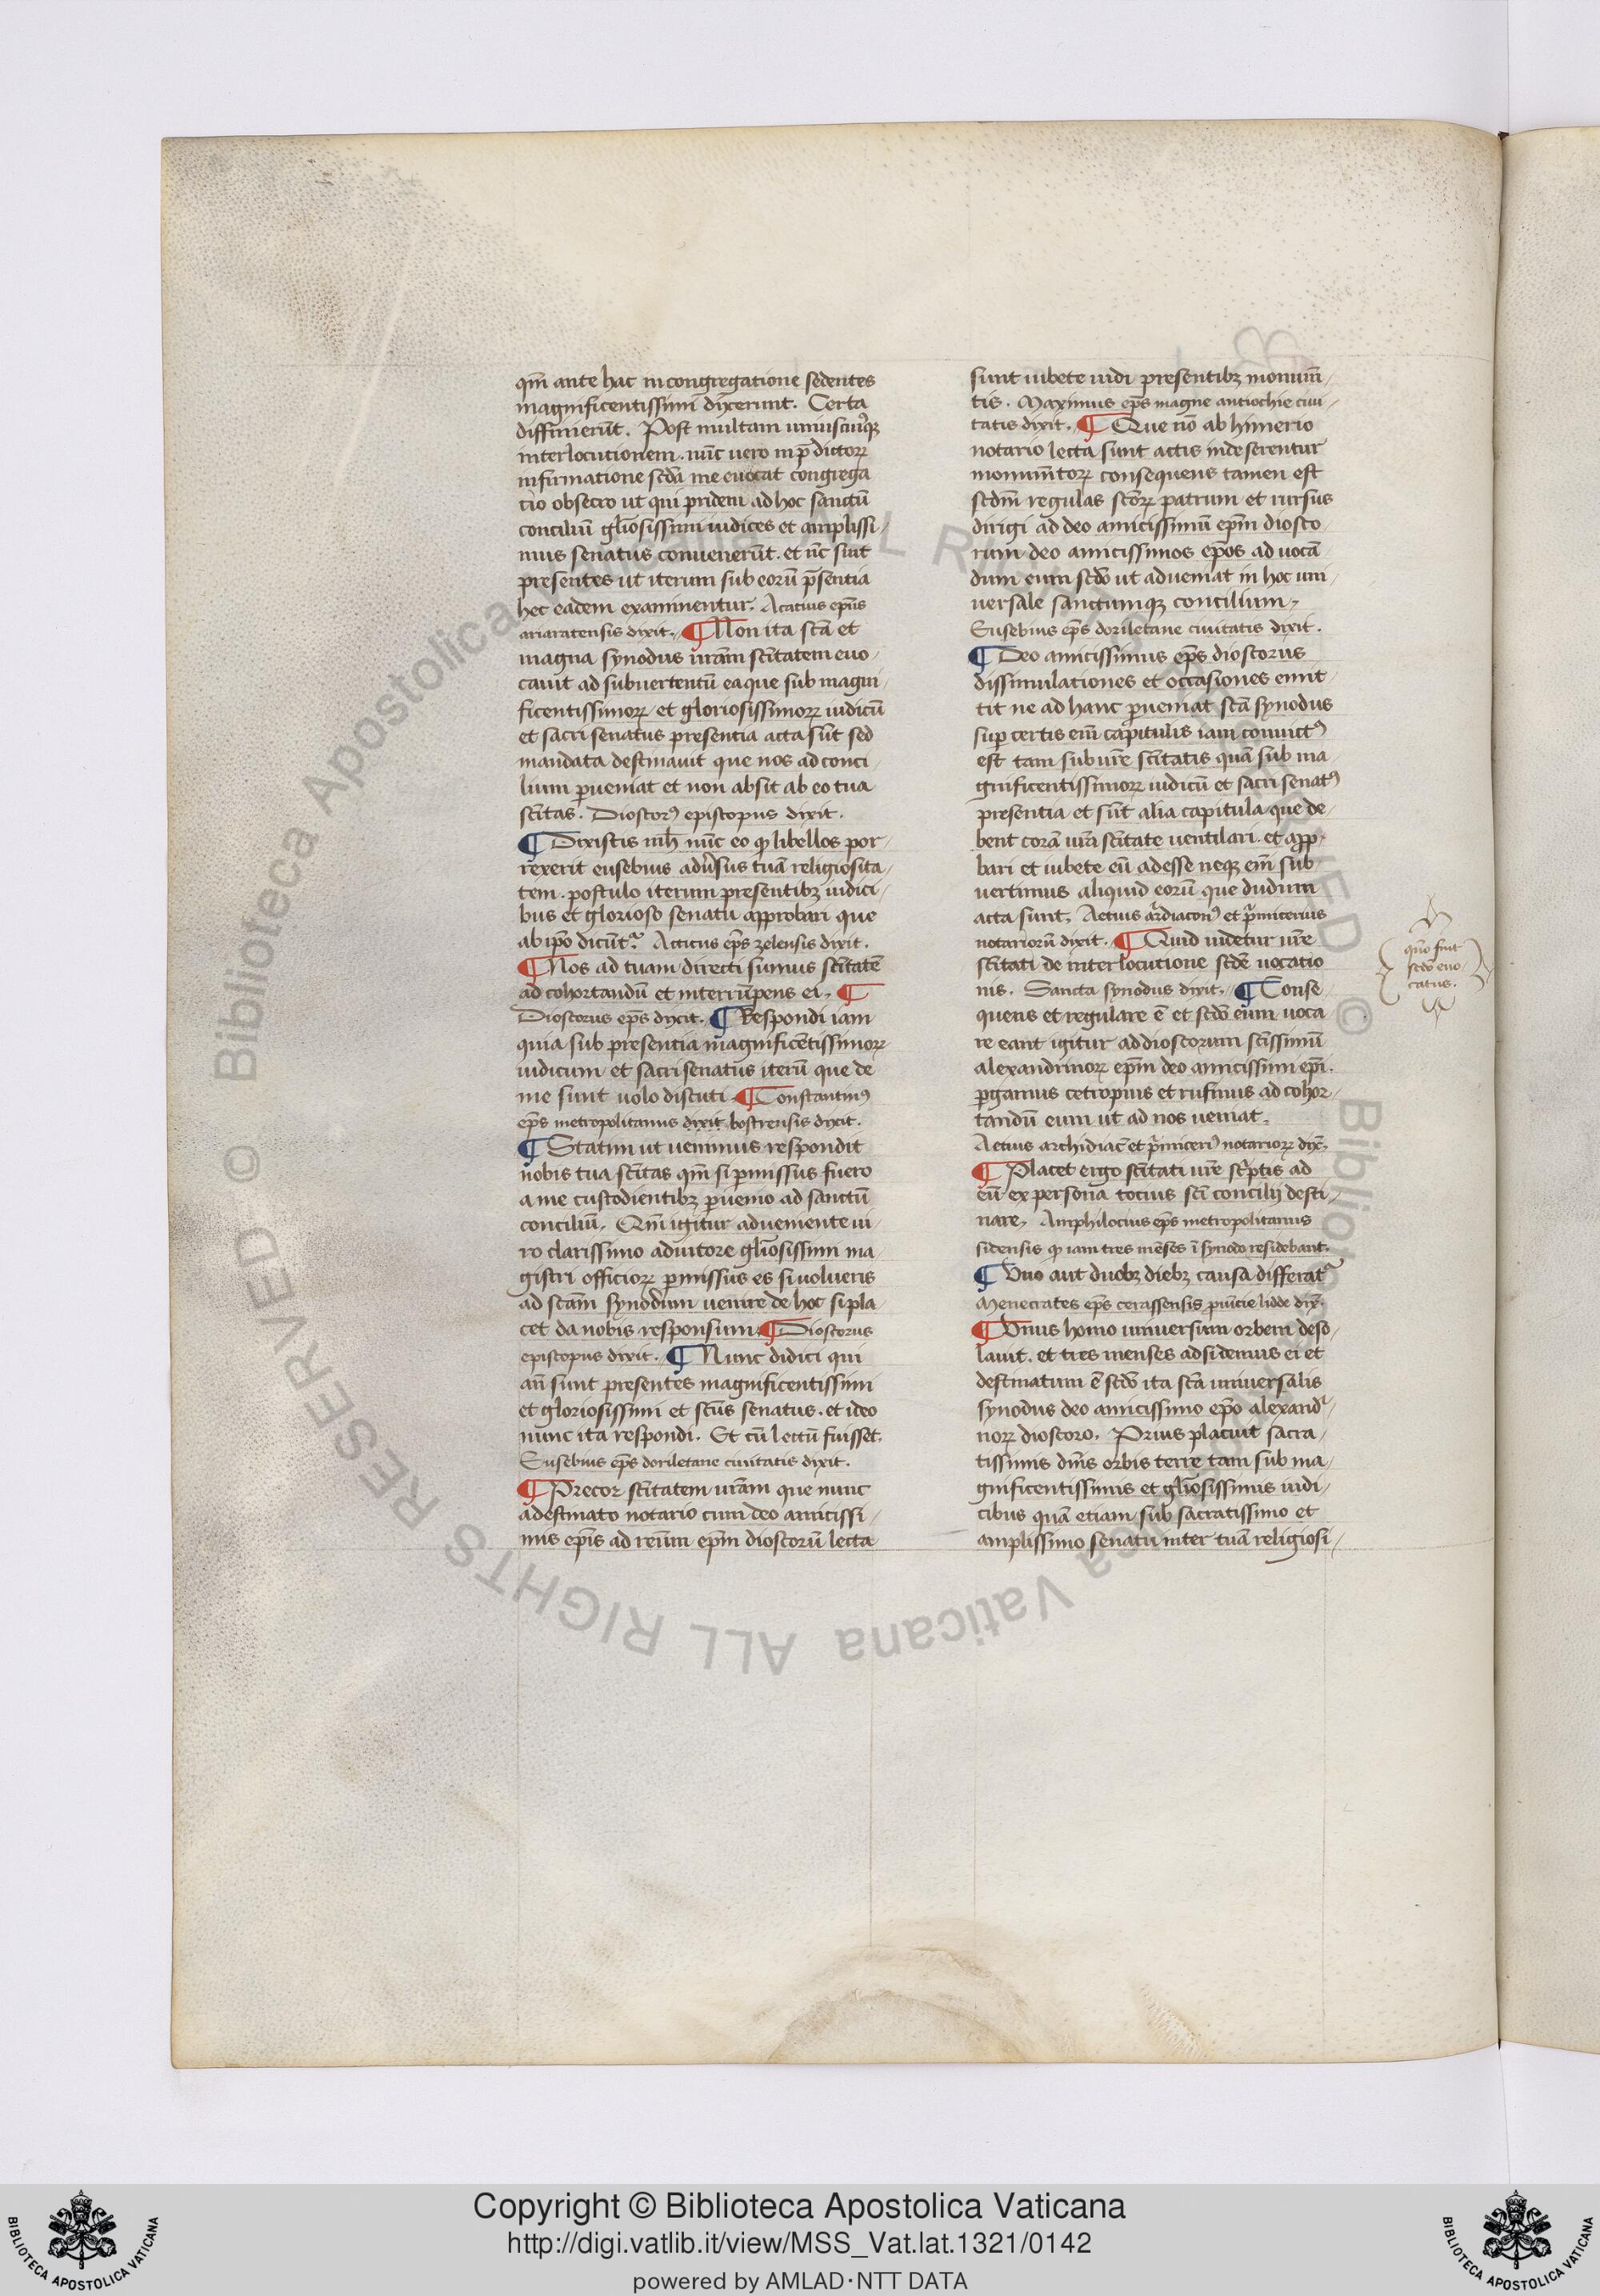 qm̄ ante hac in congregatione sedentes
magnificentissimi dixerunt. Certa
diffinierūt. Post multam uniuscuiusqꝫ
interlocutionem. nūc uero in p̄dictoꝝ
infirmatione scdā me euocat congrega
tio obsecro ut qui pridem ad hoc sanctū
conciliū gl̄iosissimi iudices et amplissi
mus senatus conuenerūt. et nc̄ sint
presentes ut iterum sub eorū p̄sentia
hec eadem examinentur. Acacius ep̄us
ariaratensis dixit. ¶ Non ita sc̄a et
magna synodus ur̄am sc̄itatem euo
cauit ad subuertentū ea que sub magni
ficentissimoꝝ et gloriosissimoꝝ iudicū
et sacri senatus presentia acta sūt sed
mandata destinauit que nos ad conci
lium ꝑueniat et non absit ab eo tua
sc̄itas. Dioscorꝰ episcopus dixit.
¶ Dixistis mh̄ nūc eo ꝙ libellos por
rexerit eusebius adūsus tuā religiosita
tem. postulo iterum presentibꝫ iudici
bus et glorioso senatu approbari que
ab ip̄o dicūtᷣ. Atticus ep̄s zelensis dixit.
¶ Nos ad tuam directi sumus sc̄itatē
ad cohortandū et interrūpens ei. ¶
Dioscorus ep̄s dixit. ¶ Respondi iam
quia sub presentia magnificētissimoꝝ
iudicum et sacri senatus iterū que de
me sunt uolo discuti. ¶ Constantinꝰ
ep̄s metropolitanus dixit bostrensis dixit.
¶ Statim ut uenimus respondit
nobis tua sc̄itas qm̄ si ꝑmissus fuero
a me custodientibꝫ ꝑuenio ad sanctū
conciliū. Qm̄ igitur adueniente ui
ro clarissimo adiutore gl̄iosissimi ma
gistri officioꝝ ꝑmissus es si uolueris
ad sc̄am synodum uenire de hoc si pla
cet da nobis responsum. ¶ Dioscorus
episcopus dixit. ¶ Nunc didici qui
an̄ sunt presentes magnificentissimi
et gloriosissimi et sc̄us senatus. et ideo
nunc ita respondi. Et cū lectū fuisset.
Eusebius ep̄s doriletane ciuitatis dixit.
¶ Precor sc̄itatem ur̄am que nunc
a destinato notario cum deo amicissi
mis ep̄is ad reūm ep̄m dioscorū lecta
sunt iubete indi presentibꝫ monum̄
tis. Maximus ep̄s magne antiochie ciui
tatis dixit. ¶ Que nō ab himerio
notario lecta sunt actis indeserentur
monum̄toꝝ consequens tamen est
scdm̄ regulas sc̄oꝝ patrum et rursus
dirigi ad deo amicissimū ep̄m diosco
rum deo amicissimos ep̄os ad uocā
dum eum scdo ut adueniat in hoc uni
uersale sanctumqꝫ concilium.
Eusebius ep̄s doriletane ciuitatis dixit.
¶ Deo amicissimus ep̄s dioscorus
dissimulationes et occasiones emit
tit ne ad hanc ꝑueniat sc̄am synodus
suꝑ certis eni̅ capitulis iam conuictꝰ
est tam sub ur̄e sc̄itatis quā sub ma
gnificentissimoꝝ iudicū et sacri senatꝰ
presentia et sūt alia capitula que de
bent corā ur̄a sc̄itate uentilari. et app̄
bari et iubete eū adesse neqꝫ eni̅ sub
uertimus aliquid eorū que dudum
acta sunt. Aetius ar̄diaconꝰ et p̄micerius
notariorū dixit. ¶ Quid uidetur ur̄e
sc̄itati de interlocutione scde uocatio
nis. Sancta synodus dixit. ¶ Conse
quens et regulare ē et scdo eum uoca
re eant igitur ad dioscorum sc̄issimū
alexandrinoꝝ ep̄m deo amicissimi ep̄i.
ꝑgamus cetropius et rufinus ad cohor
tandū eum ut ad nos ueniat.
Aetius archidiac̄ et p̄micerꝰ notarioꝝ dix̄.
¶ Placet ergo sc̄itati ur̄e sc̄ptis ad
eū ex persona tocius sc̄i concilij desti
nare. Amphilocius ep̄s metropolitanus
sidensis ꝙ iam tres mēses ī synodo residebant.
¶ Vno aut duobꝫ diebꝫ causa differatᷣ
Menecrates ep̄s cerassensis ꝓuīcie lidde dix̄.
¶ Vnus homo uniuersum orbem deso
lauit. et tres menses adsidemus ei et
destinatum ē scdo ita sc̄a uniuersalis
synodus deo amicissimo ep̄o alexandⁱ
noꝝ dioscoro. Prius placuit sacra
tissimis dn̄is orbis terre tam sub ma
gnificentissimis et gl̄iosissimis iudi
cibus quā etiam sub sacratissimo et
amplissimo senatu inter tuā religiosi
quo fuit
scdo euo
catus.
Copyright © Biblioteca Apostolica Vaticana
http://digi.vatlib.it/view/MSS_Vat.lat.1321/0142
powered by AMLAD·NTT DATA
BIBLIOTECA APOSTOLICA VATICANA
BIBLIOTECA APOSTOLICA VATICANA
© Biblioteca Apostolica Vaticana ALL RIGHTS RESERVED
© Biblioteca Apostolica Vaticana ALL RIGHTS RESERVED